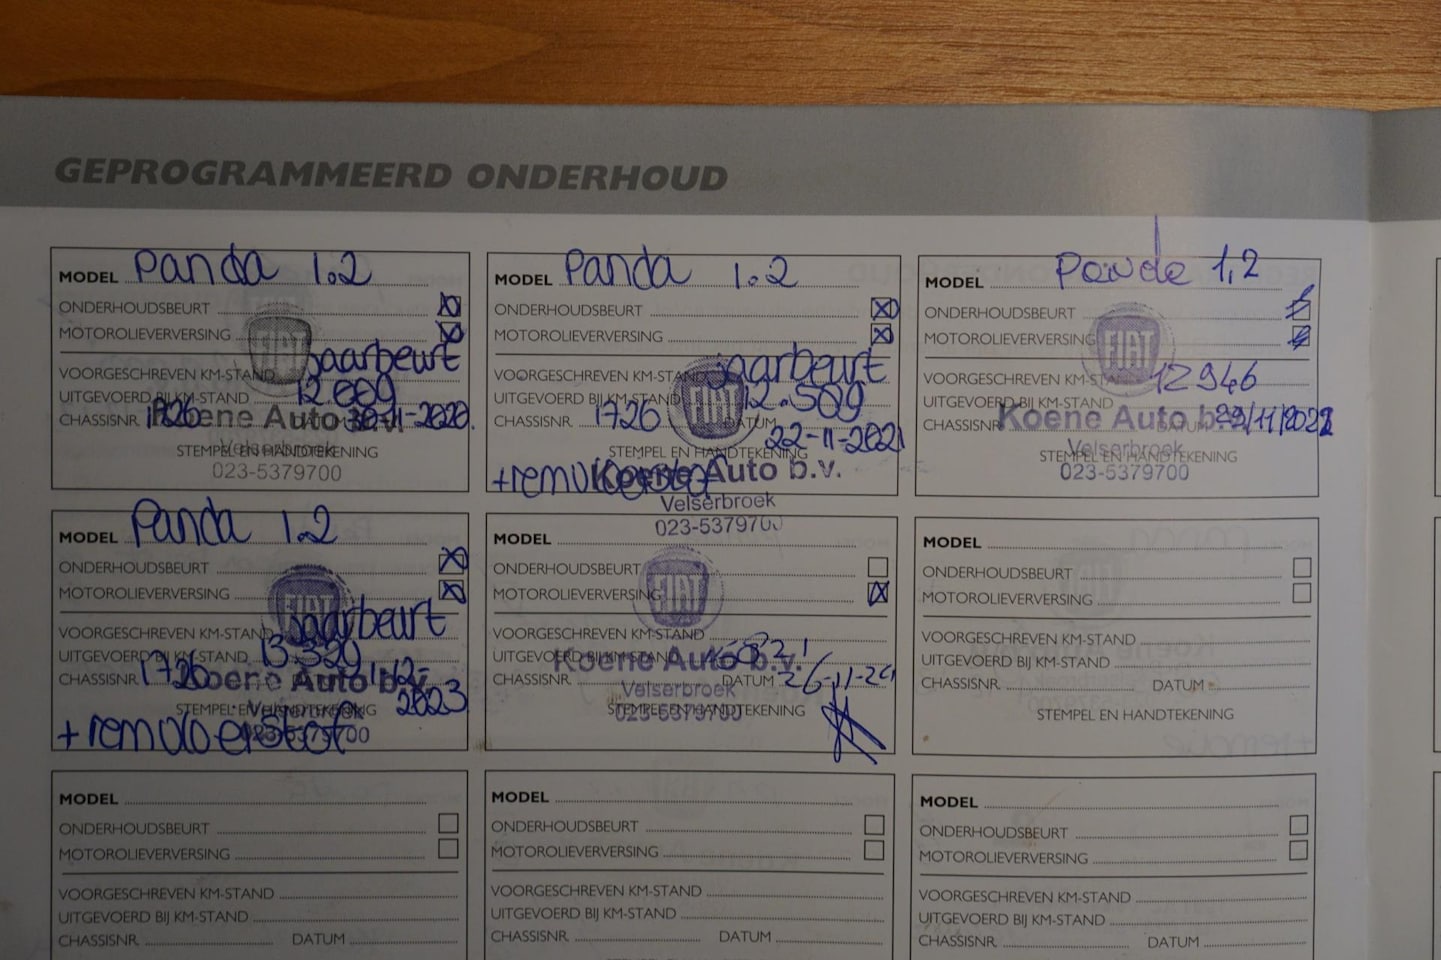 GEPROGRAMMEERD ONDERHOUD
MODEL Panda 1.2
ONDERHOUDSBEURT
MOTOROLIEVERVERSING
FIAT
Jaarbeurt
VOORGESCHREVEN KM-STAND
UITGEVOERD BIJ KM-STAND 12.009
CHASSISNR. 1726 30-11-2020.
Koene Auto b.v.
STEMPEL EN HANDTEKENING
Velserbroek
023-5379700
MODEL Panda 1.2
ONDERHOUDSBEURT
MOTOROLIEVERVERSING
FIAT
Jaarbeurt
VOORGESCHREVEN KM-STAND
UITGEVOERD BIJ KM-STAND 12.509
CHASSISNR. 1726 DATUM 22-11-2021
STEMPEL EN HANDTEKENING
+remvloeistof
Koene Auto b.v.
Velserbroek
023-5379700
MODEL Panda 1,2
ONDERHOUDSBEURT
MOTOROLIEVERVERSING
FIAT
VOORGESCHREVEN KM-STAND
UITGEVOERD BIJ KM-STAND 12946
CHASSISNR. DATUM
Koene Auto b.v.
STEMPEL EN HANDTEKENING
Velserbroek
023-5379700
MODEL Panda 1.2
ONDERHOUDSBEURT
MOTOROLIEVERVERSING
FIAT
Jaarbeurt
VOORGESCHREVEN KM-STAND
UITGEVOERD BIJ KM-STAND 13320
CHASSISNR. 1726 2023
Koene Auto b.v.
STEMPEL EN HANDTEKENING
Velserbroek
023-5379700
+remvloeistof
MODEL
ONDERHOUDSBEURT
MOTOROLIEVERVERSING
FIAT
VOORGESCHREVEN KM-STAND
UITGEVOERD BIJ KM-STAND
Koene Auto b.v.
CHASSISNR. DATUM
Velserbroek
STEMPEL EN HANDTEKENING
023-5379700
MODEL
ONDERHOUDSBEURT
MOTOROLIEVERVERSING
VOORGESCHREVEN KM-STAND
UITGEVOERD BIJ KM-STAND
CHASSISNR. DATUM
STEMPEL EN HANDTEKENING
MODEL
ONDERHOUDSBEURT
MOTOROLIEVERVERSING
VOORGESCHREVEN KM-STAND
UITGEVOERD BIJ KM-STAND
CHASSISNR. DATUM
MODEL
ONDERHOUDSBEURT
MOTOROLIEVERVERSING
VOORGESCHREVEN KM-STAND
UITGEVOERD BIJ KM-STAND
CHASSISNR. DATUM
MODEL
ONDERHOUDSBEURT
MOTOROLIEVERVERSING
VOORGESCHREVEN KM-STAND
UITGEVOERD BIJ KM-STAND
CHASSISNR. DATUM